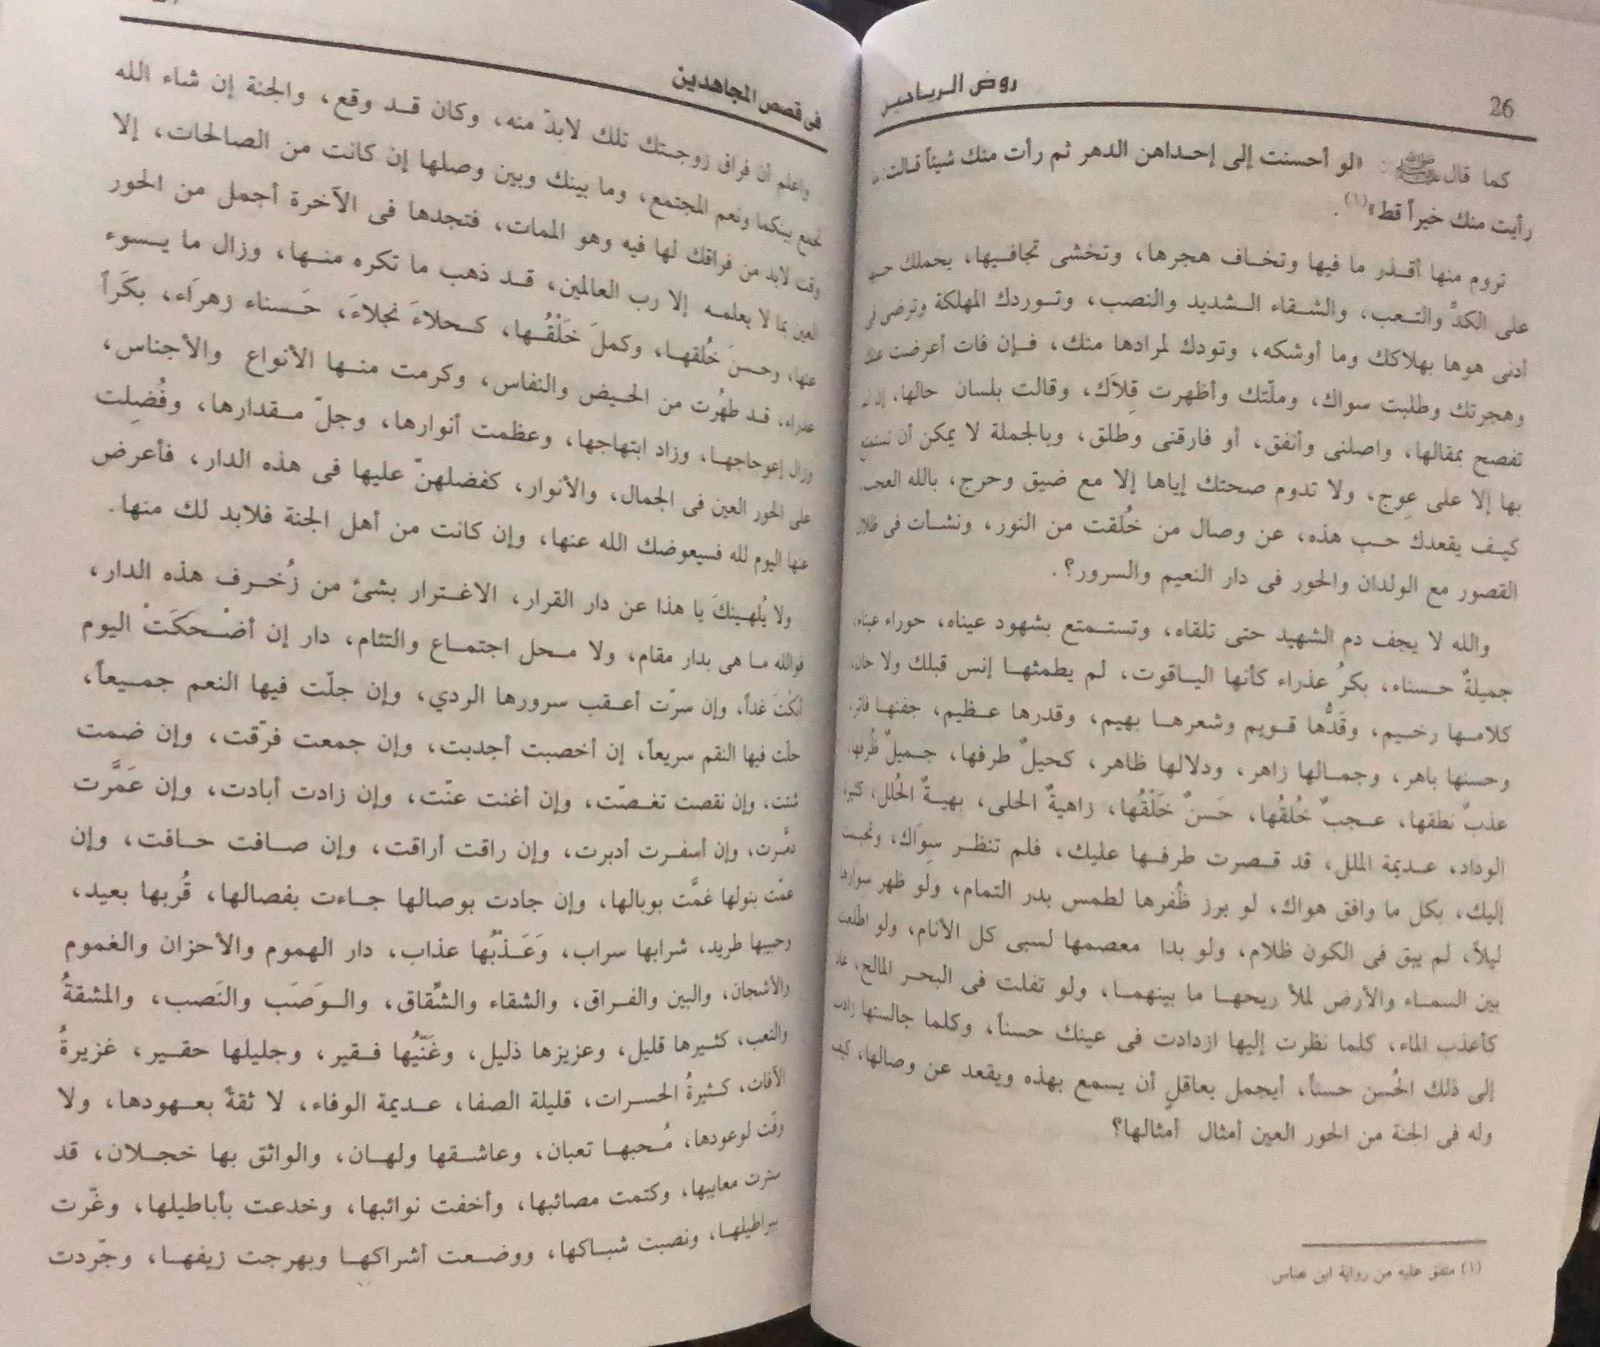 26
روض الرياحين
كما قال ﷺ : «لو أحسنت إلى إحداهن الدهر ثم رأت منك شيئاً قالت: ما
رأيت منك خيراً قط»(١) .
تروم منها أقذر ما فيها وتخاف هجرها، وتخشى تجافيها، يحملك حبها
على الكدِّ والتعب، والشقاء الشديد والنصب، وتوردك المهلكة وترضى فى
أدنى هوها بهلاكك وما أوشكه، وتودك لمرادها منك، فإن فات أعرضت عنك
وهجرتك وطلبت سواك، وملّتك وأظهرت قِلاَك، وقالت بلسان حالها، إن لم
تفصح بمقالها، واصلنى وأنفق، أو فارقنى وطلق، وبالجملة لا يمكن أن تستمتع
بها إلا على عِوج، ولا تدوم صحتك إياها إلا مع ضيق وحرج، بالله العجب
كيف يقعدك حب هذه، عن وصال من خُلقت من النور، ونشأت فى ظلال
القصور مع الولدان والحور فى دار النعيم والسرور؟.
والله لا يجف دم الشهيد حتى تلقاه، وتستمتع بشهود عيناه، حوراء عيناء،
جميلةٌ حسناء، بكرُ عذراء كأنها الياقوت، لم يطمثها إنس قبلك ولا جان،
كلامها رخيم، وقَدُّها قويم وشعرها بهيم، وقدرها عظيم، جفنها فاتر،
وحسنها باهر، وجمالها زاهر، ودلالها ظاهر، كحيلٌ طرفها، جميلٌ ظُرفها،
عذبٌ نطقها، عجبٌ خُلقُها، حَسنٌ خَلْقُها، زاهيةٌ الحلى، بهيةٌ الحُلل، كثيرة
الوداد، عديمة الملل، قد قصرت طرفها عليك، فلم تنظر سِوَاك، وتحببت
إليك، بكل ما وافق هواك، لو برز ظُفرها لطمس بدر التمام، ولو ظهر سِوَارها
ليلاً، لم يبق فى الكون ظلام، ولو بدا معصمها لسبى كل الأنام، ولو اطلعت
بين السماء والأرض لملأ ريحها ما بينهما، ولو تفلت فى البحر المالح، عاد
كأعذب الماء، كلما نظرت إليها ازدادت فى عينك حسناً، وكلما جالستها زادت
إلى ذلك الحُسن حسناً، أيجمل بعاقلٍ أن يسمع بهذه ويقعد عن وصالها، كيف
وله فى الجنة من الحور العين أمثال أمثالها؟
(١) متفق عليه من رواية ابن عباس.
فى قصص المجاهدين
واعلم أن فراق زوجتك تلك لابدّ منه، وكان قد وقع، والجنة إن شاء الله
تجمع بينكما ونعم المجتمع، وما بينك وبين وصلها إن كانت من الصالحات، إلا
وقت لابد من فراقك لها فيه وهو الممات، فتجدها فى الآخرة أجمل من الحور
العين بما لا يعلمه إلا رب العالمين، قد ذهب ما تكره منها، وزال ما يسوء
عنها، وحسنَ خُلقها، وكملَ خَلْقُها، كحلاءَ نجلاءَ، حَسناء زهراَء، بكَراً
عذراء، قد طهُرت من الحيض والنفاس، وكرمت منها الأنواع والأجناس،
وزال إعوحاجها، وزاد ابتهاجها، وعظمت أنوارها، وجلّ مقدارها، وفُضِلت
على الحور العين فى الجمال، والأنوار، كفضلهنّ عليها فى هذه الدار، فأعرض
عنها اليوم لله فسيعوضك الله عنها، وإن كانت من أهل الجنة فلابد لك منها.
ولا يُلهينكَ يا هذا عن دار القرار، الاغترار بشئ من زُخرف هذه الدار،
فوالله ما هى بدار مقام، ولا محل اجتماع والتئام، دار إن أضْحكَتْ اليوم
أبْكتَ غداً، وإن سرّت أعقب سرورها الردي، وإن جلّت فيها النعم جميعاً،
حلّت فيها النقم سريعاً، إن أخصبت أجدبت، وإن جمعت فرّقت، وإن ضمت
شتت، وإن نقصت تغصّت، وإن أغنت عنّت، وإن زادت أبادت، وإن عَمَّرت
دمَّرت، وإن أسفرت أدبرت، وإن راقت أراقت، وإن صافت حافت، وإن
عمّت بنولها غمَّت بوبالها، وإن جادت بوصالها جاءت بفصالها، قُربها بعيد،
وحبيبها طريد، شرابها سراب، وَعَذْبُها عذاب، دار الهموم والأحزان والغموم
والأشجان، والبين والفراق، والشقاء والشِّقاق، والوَصَب والنَصب، والمشقةُ
والتعب، كثيرها قليل، وعزيزها ذليل، وغَنّيُها فقير، وجليلها حقير، غزيرةُ
الآفات، كثيرةُ الحسرات، قليلة الصفا، عديمة الوفاء، لا ثقةٌ بعهودها، ولا
وفّت لوعودها، مُحبها تعبان، وعاشقها ولهان، والواثق بها خجلان، قد
سترت معايبها، وكتمت مصائبها، وأخفت نوائبها، وخدعت بأباطيلها، وغّرت
ببراطيلها، ونصبت شباكها، ووضعت أشراكها وبهرجت زيفها، وجّردت